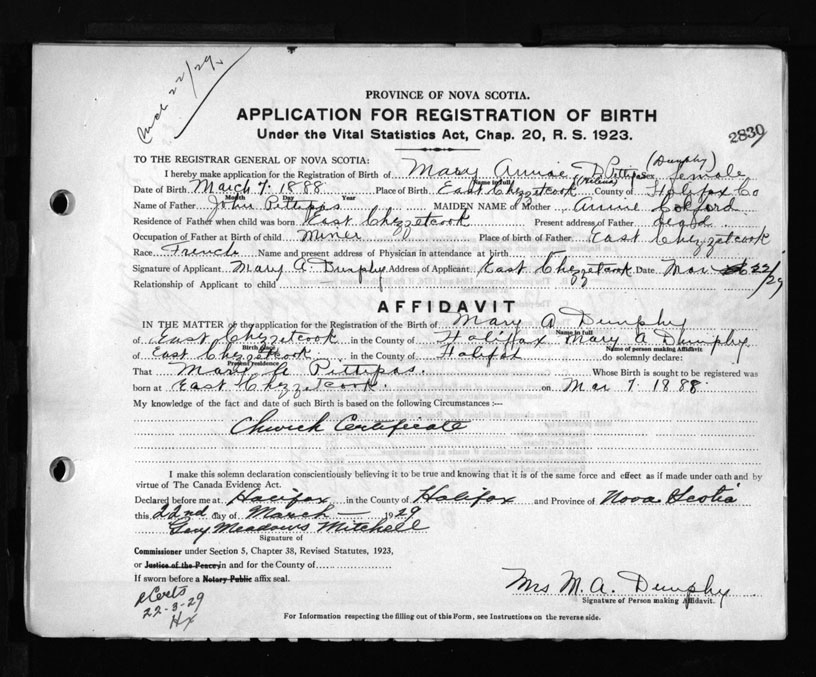 Mar 22/29.
PROVINCE OF NOVA SCOTIA.
APPLICATION FOR REGISTRATION OF BIRTH
Under the Vital Statistics Act, Chap. 20, R. S. 1923.
2839
TO THE REGISTRAR GENERAL OF NOVA SCOTIA:
(Dunphy)
I hereby make application for the Registration of Birth of Mary Annie Pittipas Sex female
Name in full
Date of Birth March 7. 1888 Place of Birth East Chezzetcook County of Halifax Co
Month Day Year
Name of Father John Pittipas MAIDEN NAME of Mother Annie Colford
Residence of Father when child was born East Chezzetcook Present address of Father dead.
Occupation of Father at Birth of child Miner Place of birth of Father East Chezzetcook
Race French Name and present address of Physician in attendance at birth
Signature of Applicant Mary A. Dunphy Address of Applicant East Chezzetcook Date Mar 22/29
Relationship of Applicant to child
AFFIDAVIT
IN THE MATTER of the application for the Registration of the Birth of Mary A Dunphy
Name in full
of East Chezzetcook in the County of Halifax Mary A Dumphy
Birth place Name of person making Affidavit
of East Chezzetcook in the County of Halifax do solemnly declare:
Present residence
That Mary A Pittipas. Whose Birth is sought to be registered was
born at East Chezzetcook. on Mar 7. 1888.
My knowledge of the fact and date of such Birth is based on the following Circumstances :—
Church Certificate
I make this solemn declaration conscientiously believing it to be true and knowing that it is of the same force and effect as if made under oath and by
virtue of The Canada Evidence Act.
Declared before me at Halifax in the County of Halifax and Province of Nova Scotia
this 22nd day of March 1929
Meadows Mitchell
Signature of
Commissioner under Section 5, Chapter 38, Revised Statutes, 1923,
or Justice of the Peace in and for the County of
If sworn before a Notary Public affix seal.
Mrs M. A. Dunphy
Signature of Person making Affidavit.
Certs
22-3-29
Hx
For Information respecting the filling out of this Form, see Instructions on the reverse side.